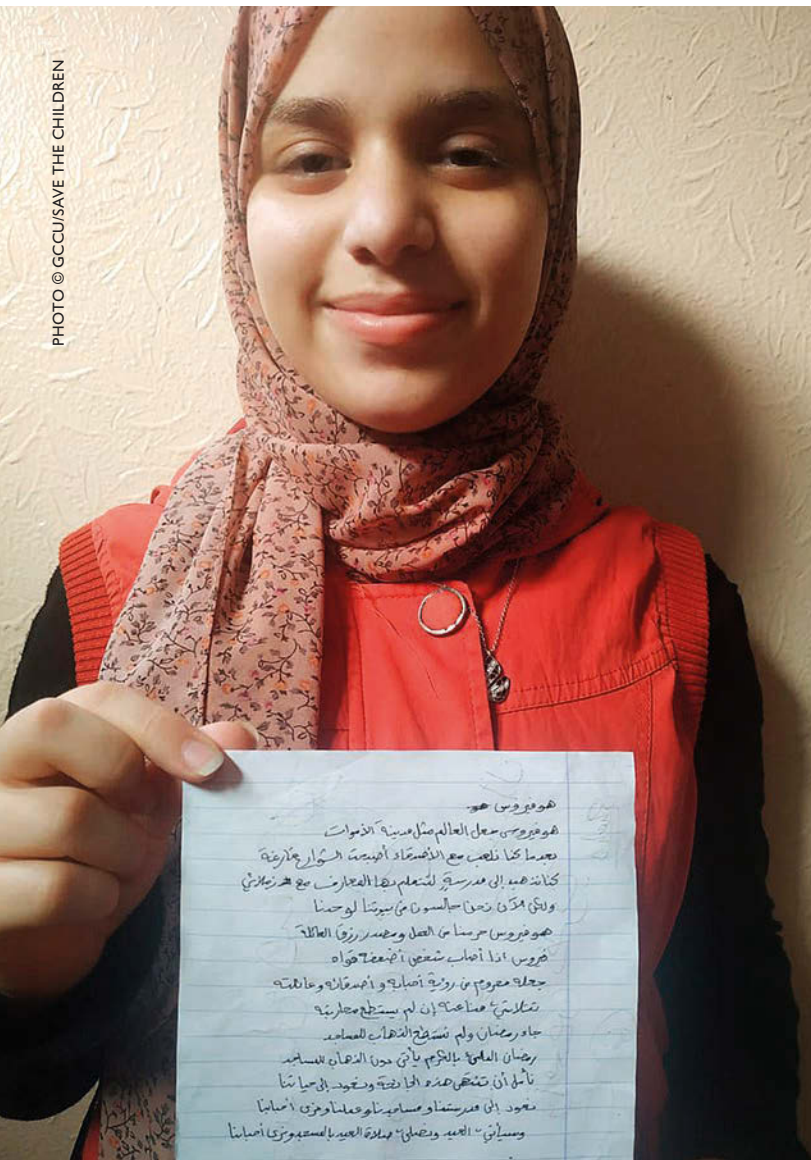 PHOTO © GCCU/SAVE THE CHILDREN
هو فيروس هو
هو فيروس جعل العالم مثل مدينة الأموات
بعدما كنا نلعب مع الأصدقاء أصبحت الشوارع فارغة
كنا نذهب إلى مدرسة لنتعلم بها المعارف مع زملائي
ولكن الآن نحن جالسون في بيوتنا لوحدنا
هو فيروس حرمنا من العمل ومصدر رزق العائلة
فيروس اذا أصاب شخص أضعفة قواه
جعله محروم من رؤية أحبابه و أصدقائه وعائلته
مناعته إن لم يستطع محاربته
جاء رمضان ولم نستطع الذهاب للمساجد
رمضان بالكرم يأتي دون الذهاب للمساجد
نأمل أن تنتهي هذه الجائحة ونعود إلى حياتنا
نعود إلى مدرستنا و مساجدنا وعملنا ونرى أحبابنا
وسيأتي العيد ونصلي صلاة العيد بالمسجد ونرى أحبابنا